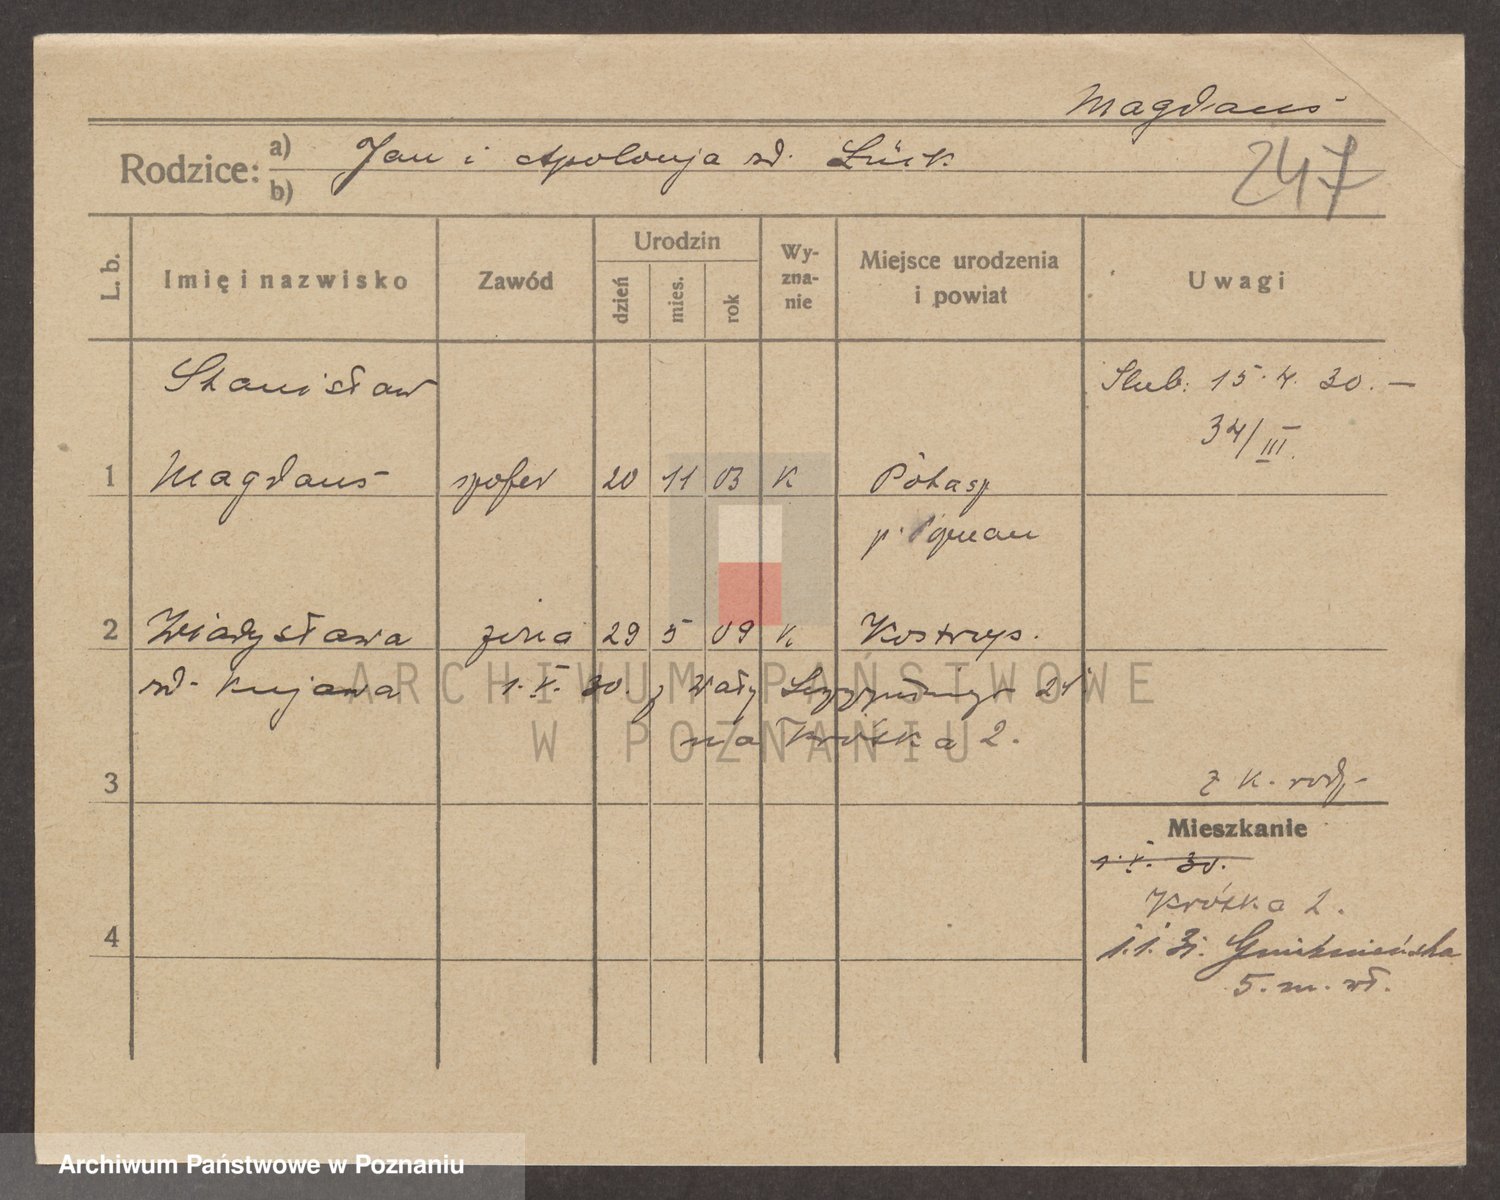 Magdans
Rodzice: a) b) Jan i Apolonja zd. Lück
247
L. b.
Imię i nazwisko
Zawód
Urodzin
dzień mies. rok
Wy-
zna-
nie
Miejsce urodzenia
i powiat
Uwagi
Stanisław
Ślub: 15.4.30. —
34/III.
1 Magdans szofer 20 11 03 K
p. Poznań
2 Władysława żona 29 5 09 K Kostrzyn.
zd. Kujawa 1.V.30. z Wały 24
na Krótka 2.
z k. rodz.
3
Mieszkanie
1.V.30.
Krótka 2.
1.1.31. Gnieźnieńska
5. m. wł.
4
ARCHIWUM PAŃSTWOWE
W POZNANIU
Archiwum Państwowe w Poznaniu